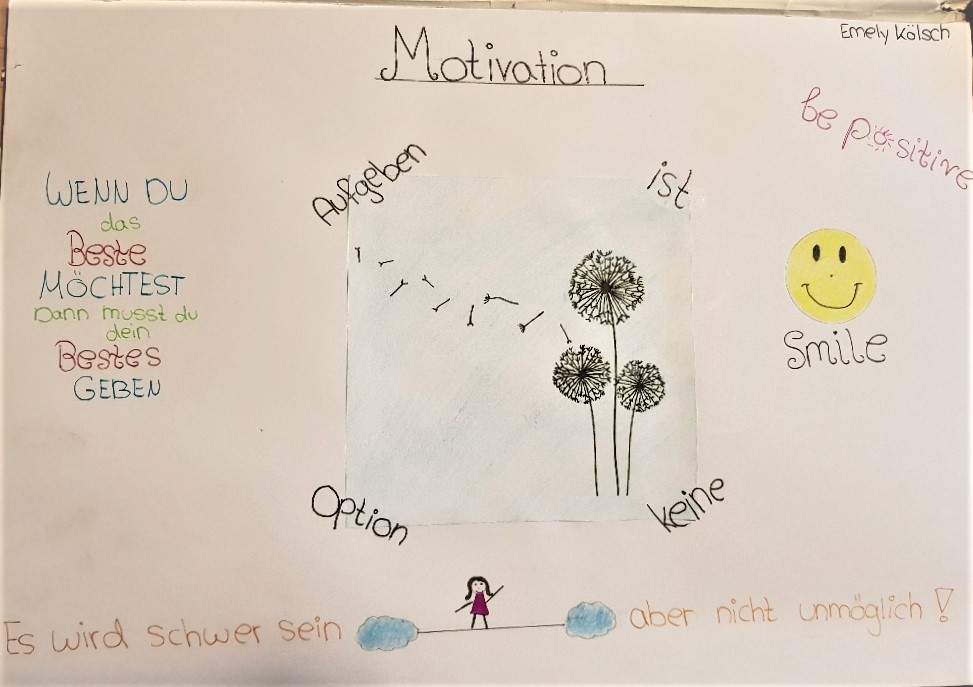 Emely Kölsch
Motivation
be positive
Aufgeben
ist
keine
Option
WENN DU
das
Beste
MÖCHTEST
Dann musst du
dein
Bestes
GEBEN
Smile
Es wird schwer sein
aber nicht unmöglich!